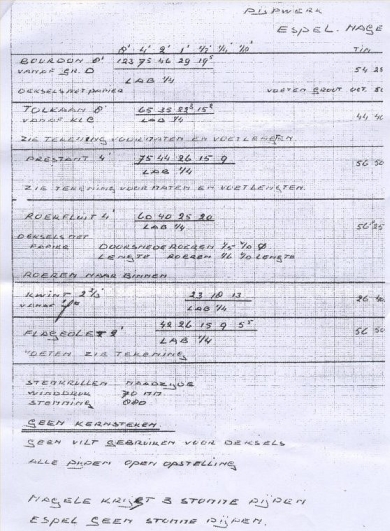 PIJPWERK
ESPEL. HAGE
8' 4' 2' 1' 1/2' 1/4 1/8' TIN
BOURDON 8' 123 75 46 29 19⁵
VANAF GR. D LAB 1/4 54 25
DEKSELS MET PAPIER VOETEN GROOT OCT.
TOLKAAN 8' 65 35 23⁵ 15²
VANAF KL C LAB 1/4 44 40
ZIE TEKENING VOOR MATEN EN VOETLENGTEN
PRESTANT 4' 75 44 26 15 9
LAB 1/4 56 50
ZIE TEKENING VOOR MATEN EN VOETLENGTEN.
ROERFLUIT 4' 60 40 25 20
LAB 1/4 56 25
DEKSELS MET
PAPIER DOORSNEDE ROEREN 1/5 % Ø
LENGTE ROEREN % LENGTE
ROEREN NAAR BINNEN
KWINT 2 2/3' 23 18 13
VANAF LAB 1/4 26 40
FLAGEOLET 2' 42 26 15 9 5⁵
LAB 1/4 56 50
VOETEN ZIE TEKENING
STEMKRULLEN NAADZIJDE
WINDDRUK 70 MM
STEMMING
GEEN KERNSTEKEN.
GEEN VILT GEBRUIKEN VOOR DEKSELS
ALLE PIJPEN OPEN OPSTELLING
NAGELE KRIJGT 3 STOMME PIJPEN
ESPEL GEEN STOMME PIJPEN.